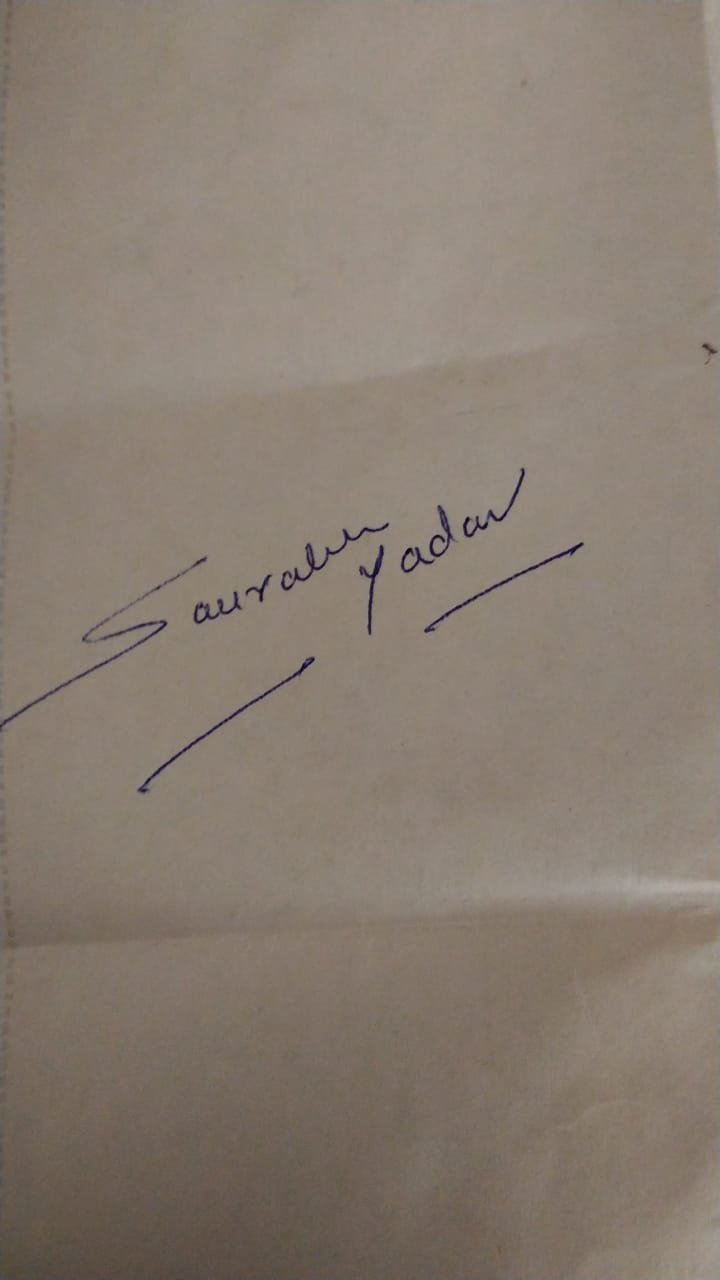 Saurabh
Yadav